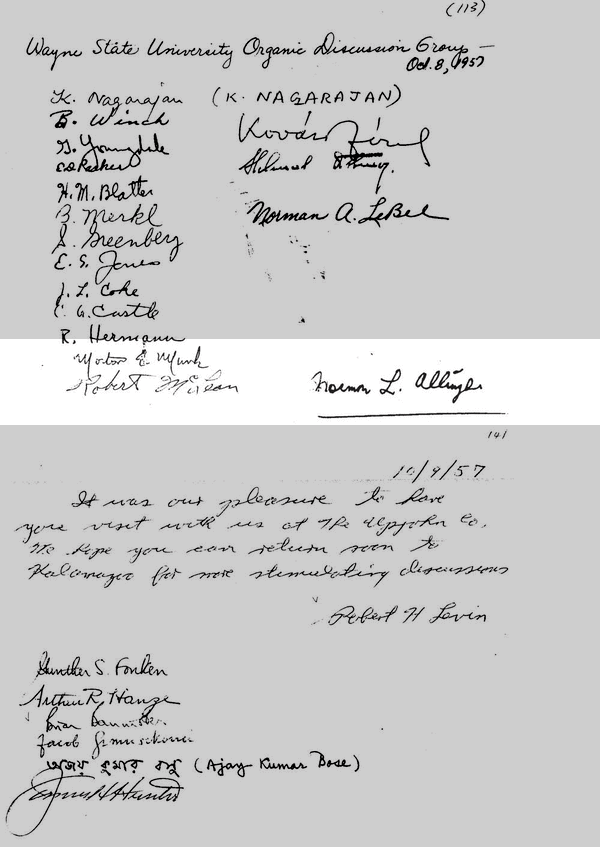 (113)
Wayne State University Organic Discussion Group —
Oct. 8, 1957
K. Nagarajan (K. NAGARAJAN)
B. Winch
Kovács
G. Youngdale
H. M. Blatter
B. Merkl
Norman A. LeBel
S. Greenberg
E. S. Jones
J. L. Coke
C. G. Castle
R. Hermann
Morton E. Munk
Robert
Norman L. Allinger
141
10/9/57
It was our pleasure to have
you visit with us at The Upjohn Co.
We hope you can return soon to
Kalamazoo for more stimulating discussions
Robert H Levin
Gunther S. Fonken
Arthur R. Hanze
Brian Bannister
Jacob
অজয় কুমার বসু (Ajay Kumar Bose)
James H Hunter